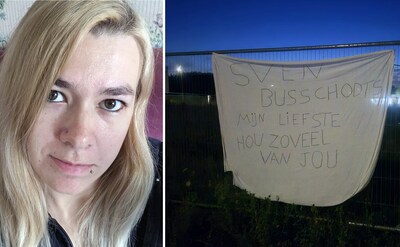 SVEN
BUSSCHODTS
MIJN LIEFSTE
HOU ZOVEEL
VAN JOU